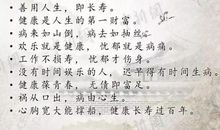 • 善用人生，即长寿。
• 健康是人生的第一财富。
• 病来如山倒，病去如抽丝。
• 欢乐就是健康，忧郁就是病痛。
• 工作不损寿，忧郁才伤身。
• 没有时间娱乐的人，迟早得有时间生病。
• 健康葆青春，无债即富足。
• 祸从口出，病由心生。
• 心胸宽大能撑船，健康长寿过百年。